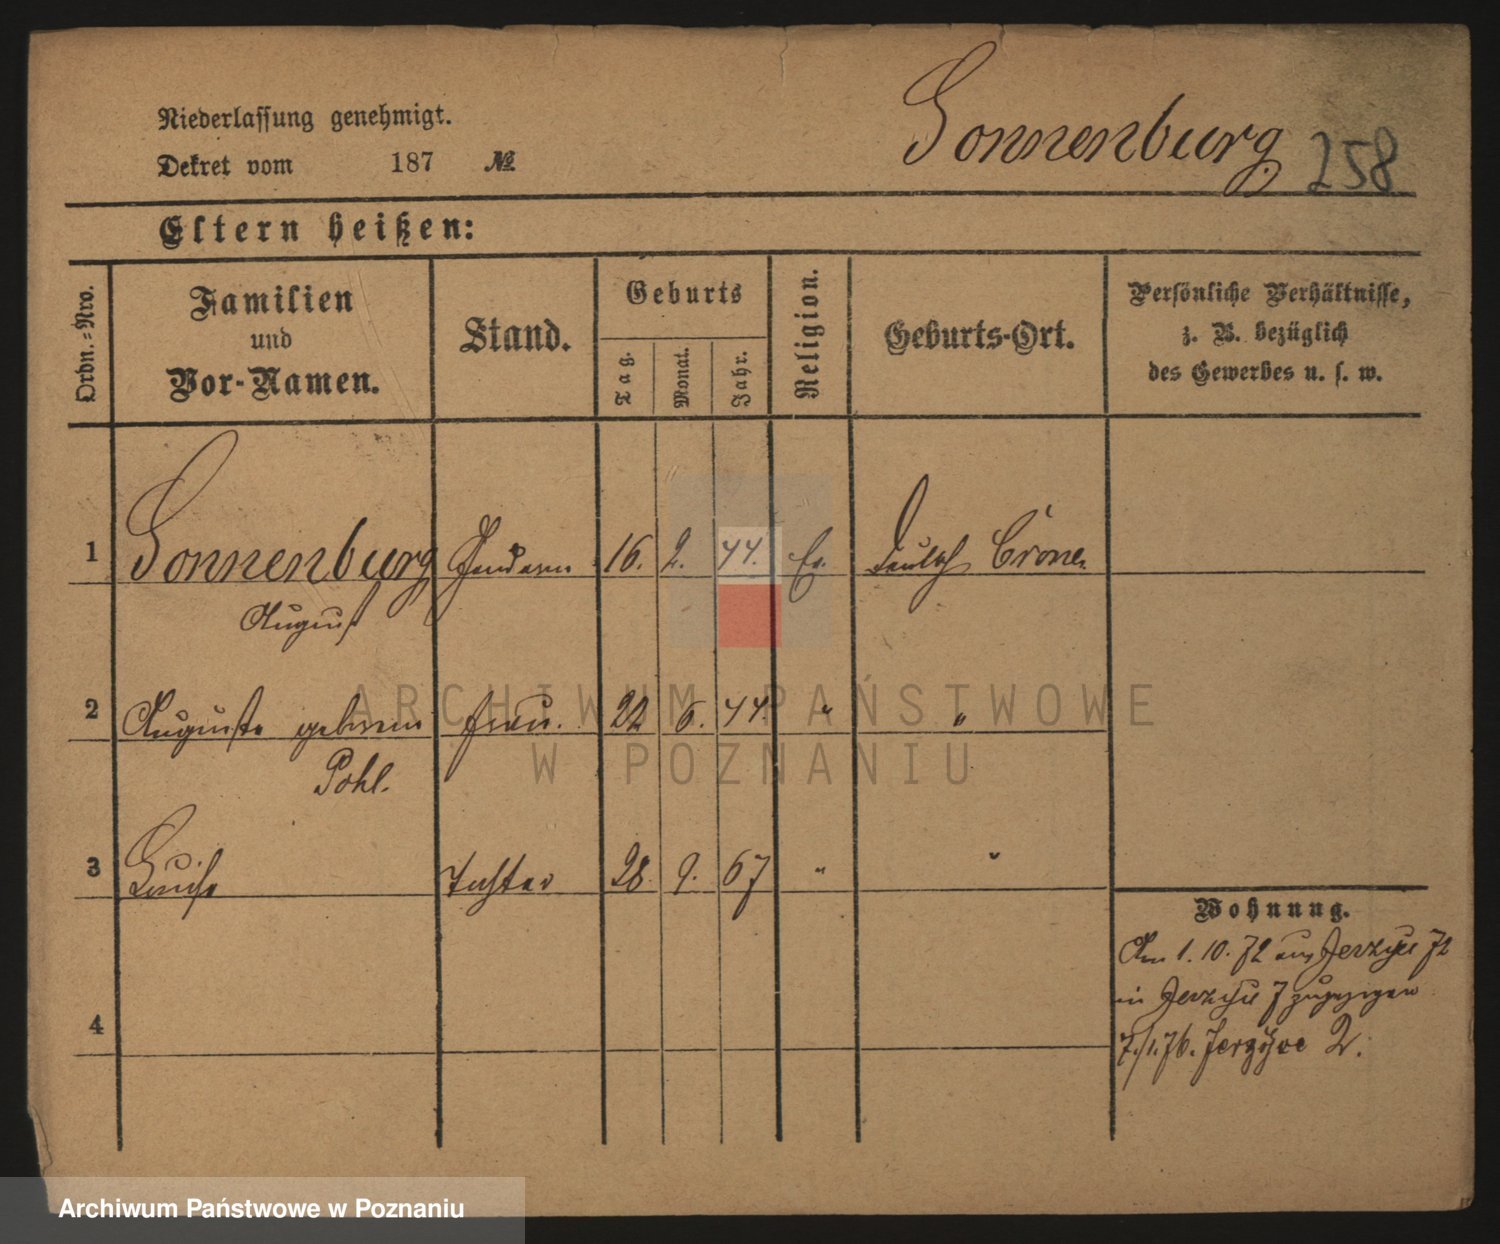 Niederlassung genehmigt.
Dekret vom 187 №
Sonnenburg 258
Eltern heißen:
Ordn.=Nro.
Familien
und
Vor-Namen.
Stand.
Geburts
Tag.
Monat.
Jahr.
Religion.
Geburts-Ort.
Persönliche Verhältnisse,
z. B. bezüglich
des Gewerbes u. s. w.
1 Sonnenburg Gendarm 16. 2. 44. Ev. Deutsch Crone
August
2 Auguste geborene Frau. 22 6. 44. " "
Pohl.
3 Luise Tochter 28. 9. 67 " "
4
Wohnung.
Am 1. 10. 72 aus Jerzyce 72
in Jerzyce 7 zugezogen
7./1. 76. Jerzyce 2.
ARCHIWUM PAŃSTWOWE
W POZNANIU
Archiwum Państwowe w Poznaniu